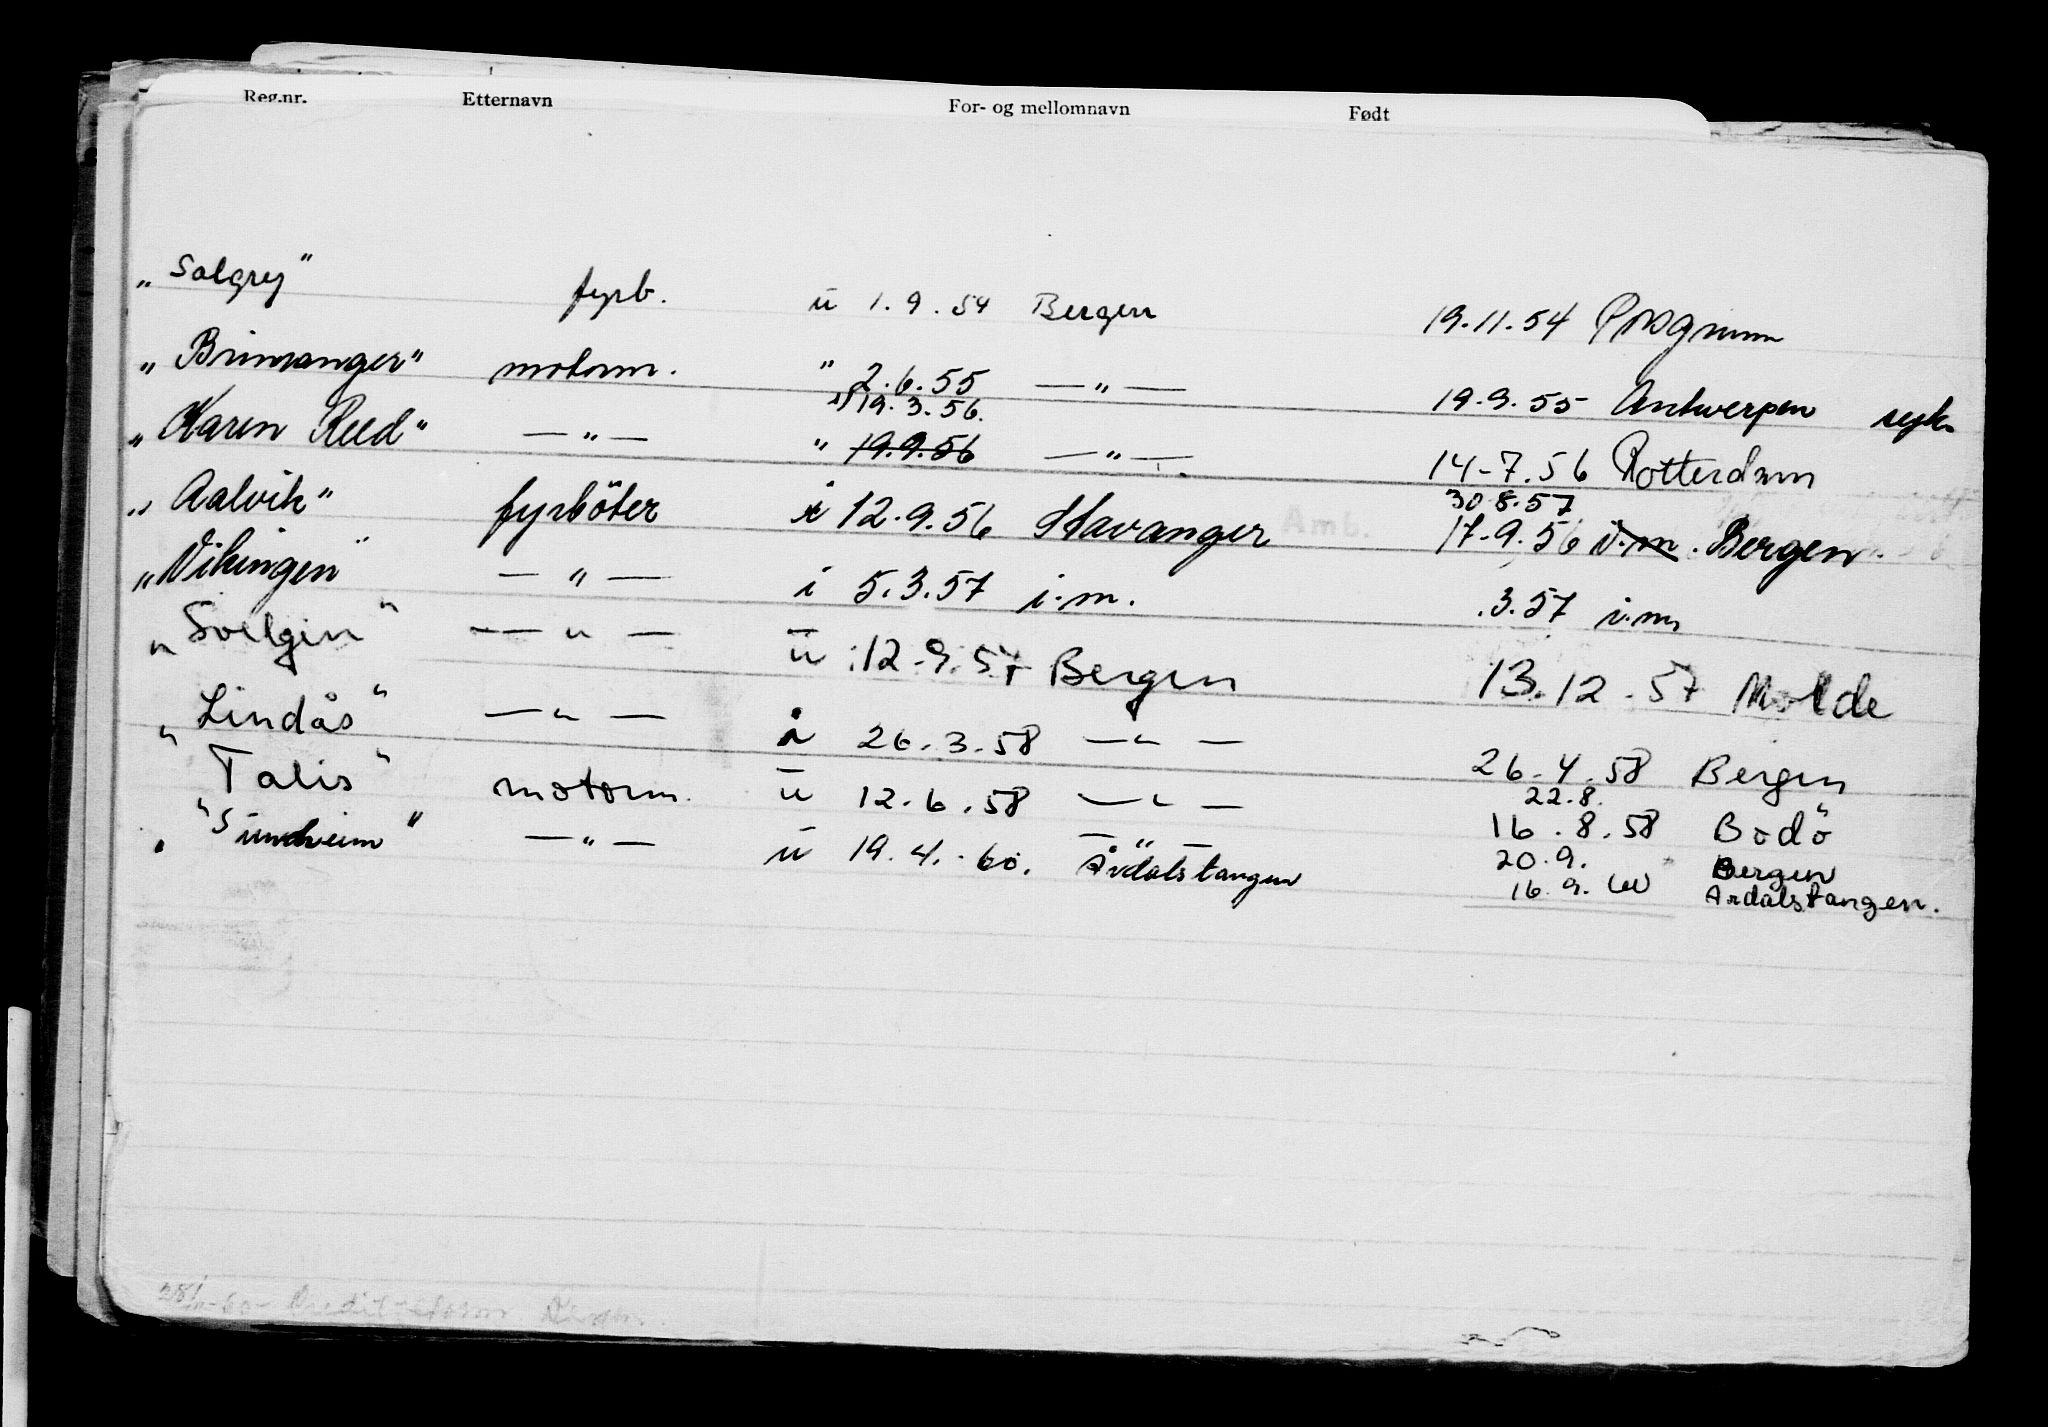 Reg.nr. Etternavn For- og mellomnavn Født
„Solgry" fyrb. u 1.9.54 Bergen 19.11.54 Porsgrunn
„Brimanger" motorm. " 2.6.55 —"— 19.9.55 Antwerpen syk.
19.3.56.
„Karen Reed" —"— " 19.9.56 —"— 14-7.56 Rotterdam
30.8.57
„Aalvik" fyrböter i 12.9.56 Stavanger 17-9.56 i.m. Bergen.
„Vikingen" —"— i 5.3.57 i.m. .3.57 i.m
„Svelgin" —"— u 12.9.57 Bergen 13.12.57 Molde
„Lindås" —"— i 26.3.58 —"— 26.4.58 Bergen
22.8.
"Talis" motorm. u 12.6.58 —"— 16.8.58 Bodö
—"— 20.9. Bergen
"Sundheim" —"— u 19.4.60. Årdalstangen 16.9.60 Årdalstangen.